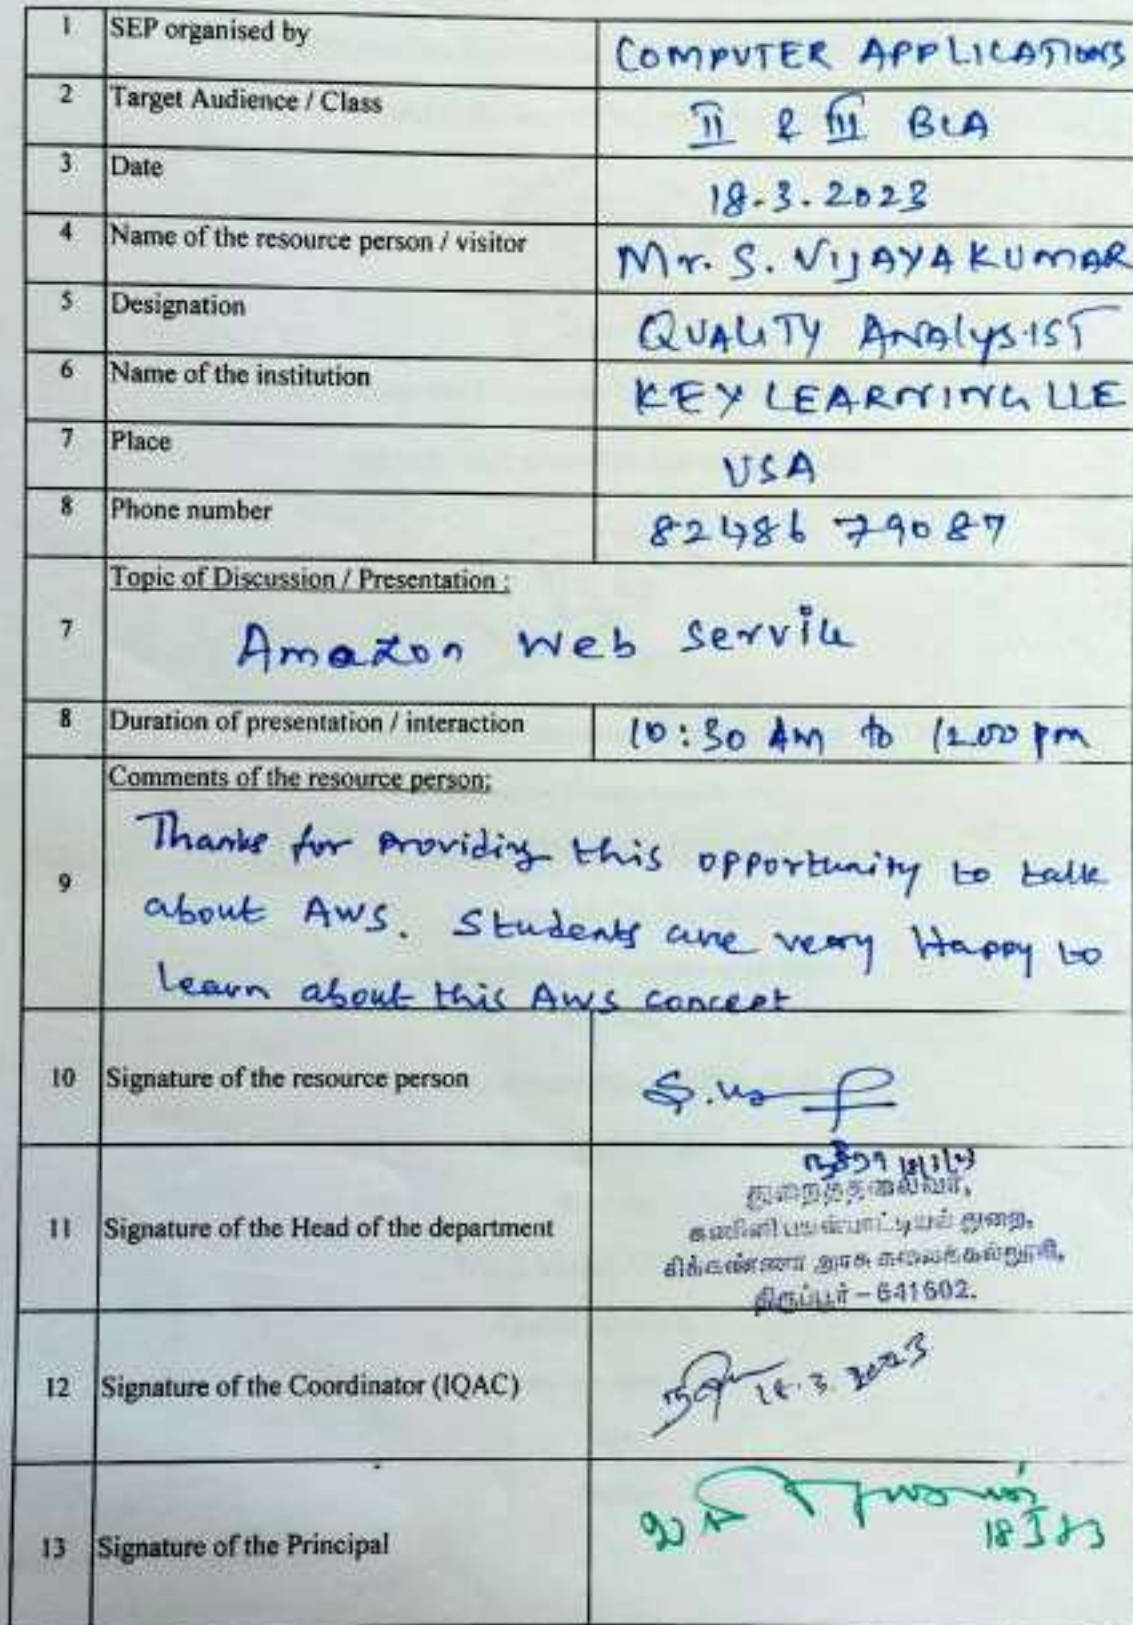 1 SEP organised by COMPUTER APPLICATIONS
2 Target Audience / Class II & III BCA
3 Date 18.3.2023
4 Name of the resource person / visitor Mr. S. VIJAYAKUMAR
5 Designation QUALITY ANALYSIST
6 Name of the institution KEY LEARNING LLE
7 Place USA
8 Phone number 82486 79087
Topic of Discussion / Presentation :
7 Amazon Web Service
8 Duration of presentation / interaction 10:30 AM to 12.00 pm
Comments of the resource person:
Thanks for Providing this opportunity to talk
9
about AWS. Students are very Happy to
learn about this AWS concept
10 Signature of the resource person
துறைத்தலைவர்,
11 Signature of the Head of the department கணினி பயன்பாட்டியல் துறை,
சிக்கண்ணா அரசு கலைக்கல்லூரி,
திருப்பூர் – 641602.
12 Signature of the Coordinator (IQAC) 18.3.2023
13 Signature of the Principal